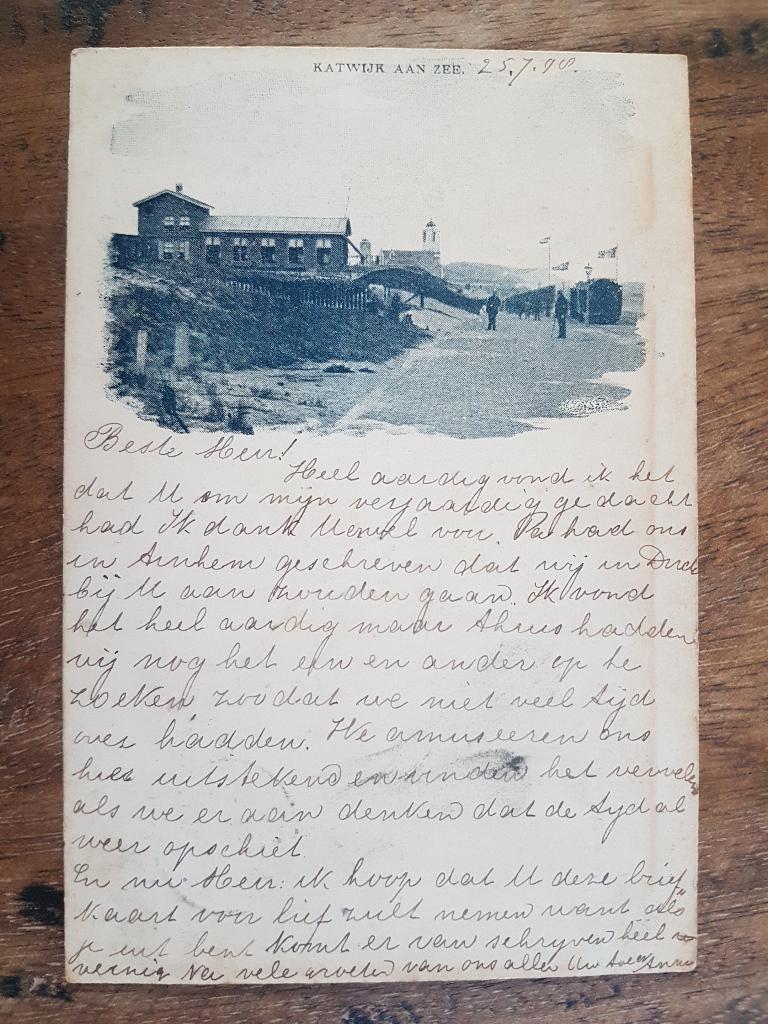 KATWIJK AAN ZEE. 25.7.98.
Beste Heer!
Heel aardig vond ik het
dat U om mijn verjaardig gedacht
had Ik dank U er wel voor. Pa had ons
in Arnhem geschreven dat wij in
bij U aan zouden gaan. Ik vond
het heel aardig maar thuis hadden
wij nog het een en ander op te
zoeken zoodat we niet veel tijd
over hadden. We amuseeren ons
hier uitstekend en vinden het vervelend
als we er aan denken dat de tijd al
weer opschiet
En nu Heer: ik hoop dat U deze brief
kaart voor lief zult nemen want als
je uit bent komt er van schrijven heel
weinig Na vele groeten van ons allen Uw